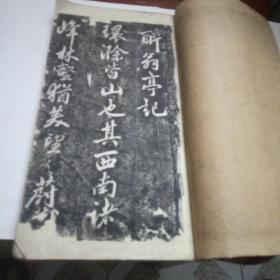 醉翁亭記
環滁皆山也其西南诸
峰林壑猶美望之蔚